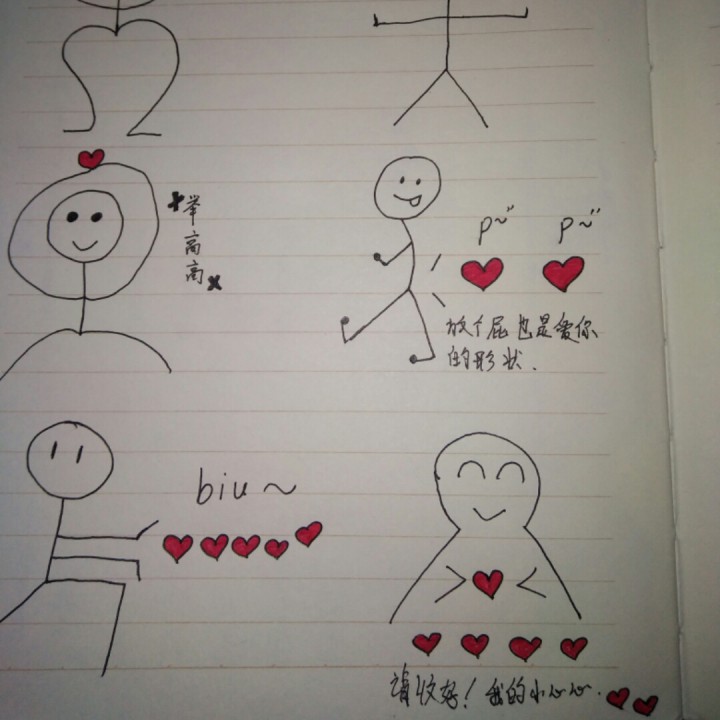 举高高
p~"
p~"
放个屁也是爱你
的形状.
biu~
请收好！我的小心心.